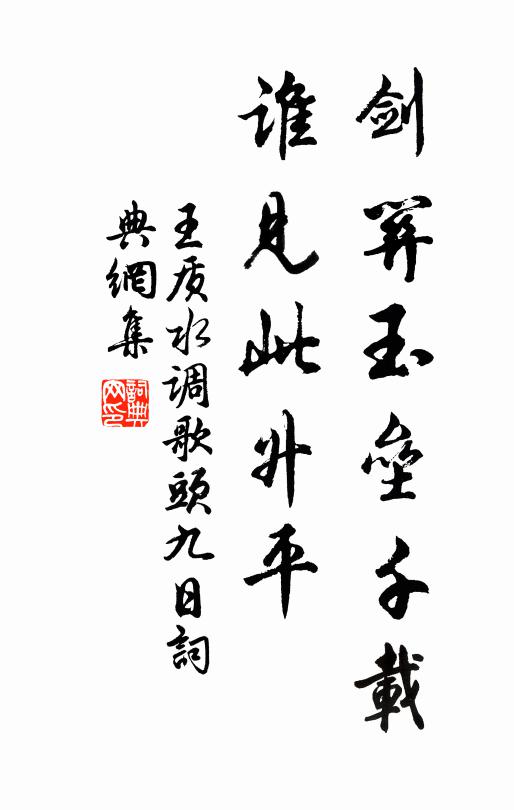 剑關玉壘千載
誰見此升平
王质水調歌頭九日詞
典網集
詞典
网印